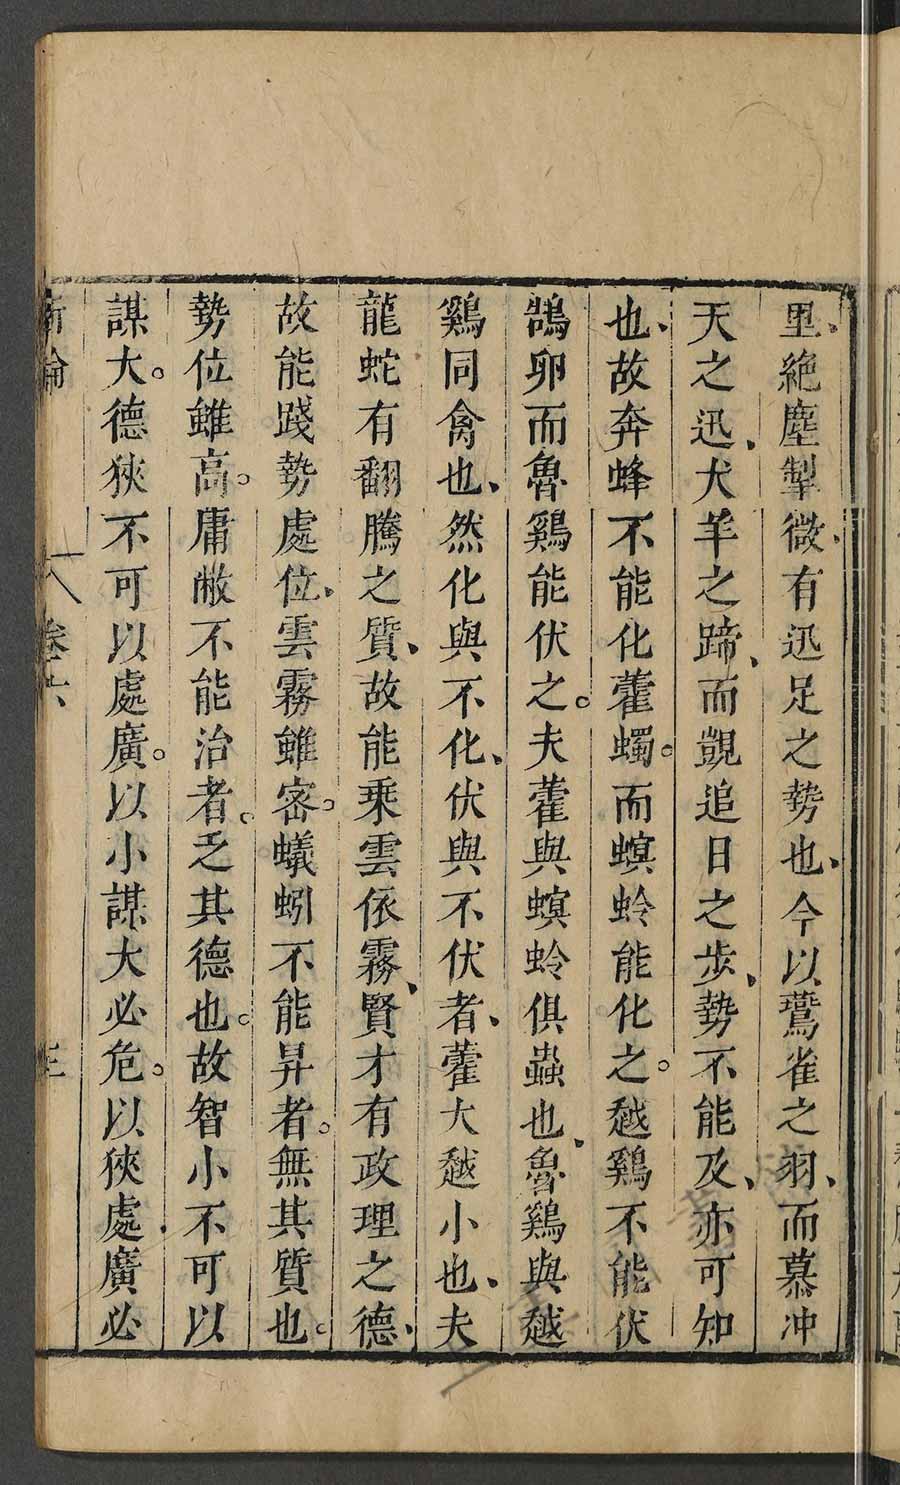 里、絶塵掣微、有迅足之勢也、今以鷰雀之羽、而慕冲
天之迅、犬羊之蹄、而覬追日之步、勢不能及、亦可知
也、故奔蜂不能化藿蠋。而螟蛉能化之。越鷄不能伏
鵠卵而魯鷄能伏之。夫藿與螟蛉俱蟲也、魯鷄與越
鷄同禽也、然化與不化、伏與不伏者、藿大越小也、夫
龍蛇有翻騰之質、故能乗雲依霧、賢才有政理之德、
故能踐勢處位、雲霧雖密。蟻蚓不能昇者。無其質也。
勢位雖高。庸蔽不能治者。乏其德也。故智小不可以
謀大。德狹不可以處廣。以小謀大必危。以狹處廣必
新論 卷六 三